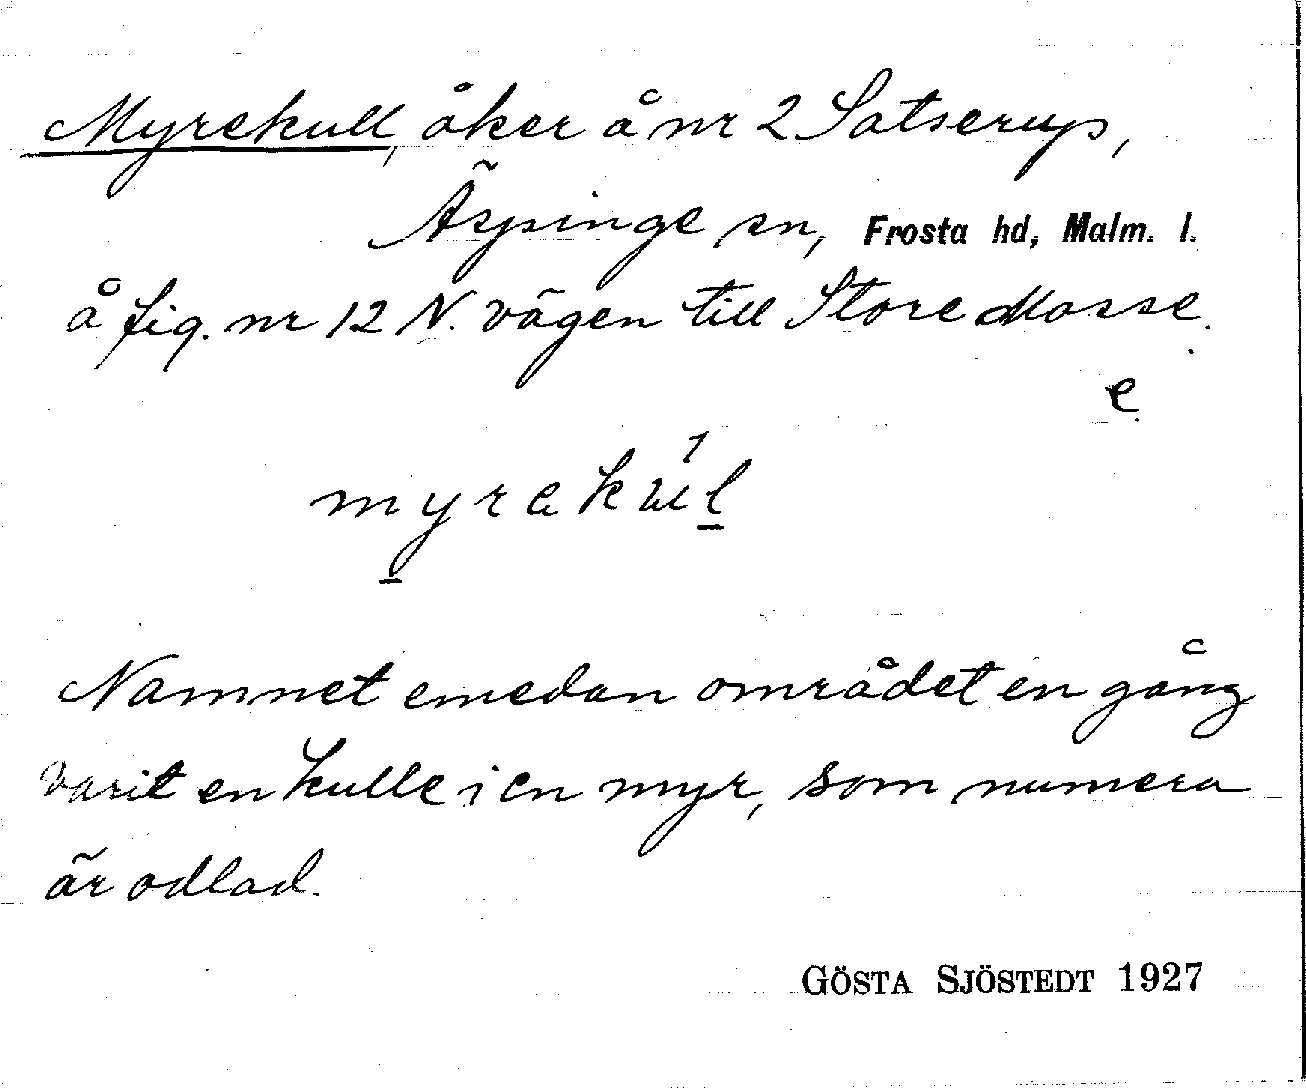 Myrekull, åker å nr 2 Satserup,
Äspinge sn, Frosta hd, Malm. l.
å fig. nr 12 N. vägen till Store Mosse.
e
myrekúl
Namnet emedan området en gång
varit en kulle i en myr, som numera
är odlad.
GÖSTA SJÖSTEDT 1927